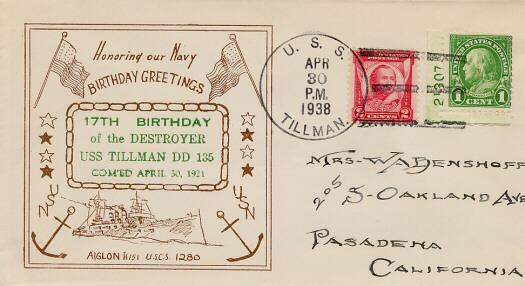 Honoring our Navy
BIRTHDAY GREETINGS
17TH BIRTHDAY
of the DESTROYER
USS TILLMAN DD 135
COM'ED APRIL 30, 1921
USN
USN
AIGLON 1151 U.S.C.S. 1280
U. S. S.
APR
30
P.M.
1938
TILLMAN.
2 CENTS 2
UNITED STATES POSTAGE
1 CENT 1
MRS-WABENSHOFF
205 S-OAKLAND AVE
PASADENA
CALIFORNIA